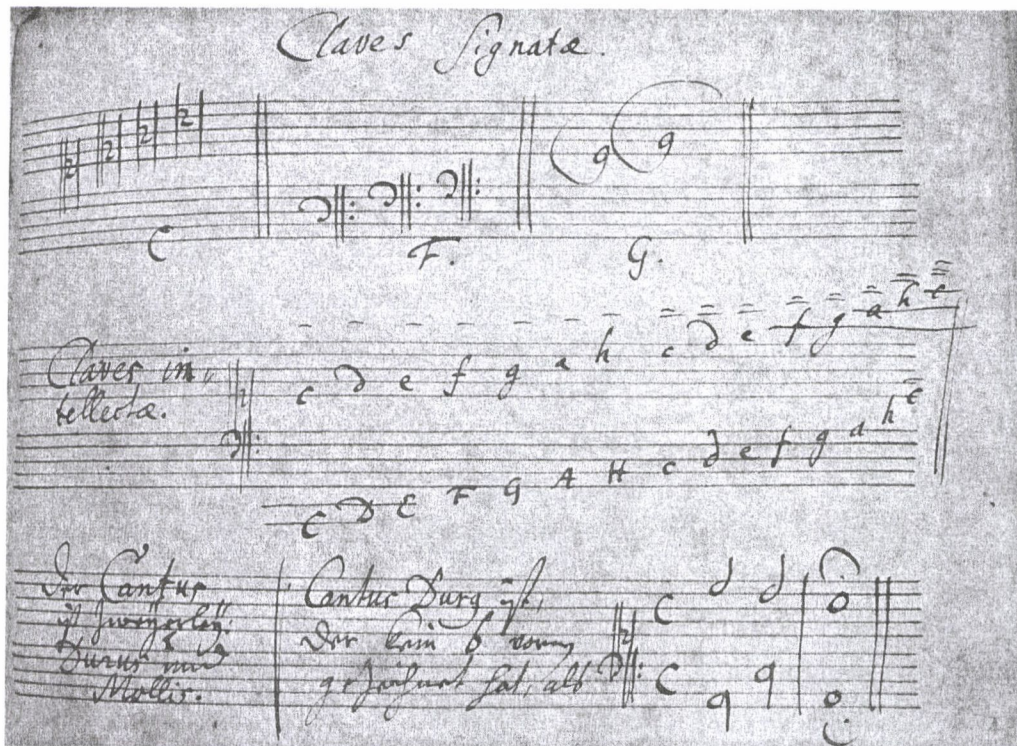 Claves Signatæ.
C F. G.
Claves in-
tellectæ.
c d e f g a h c d e f g a h c
C D E F G A H c d e f g a h c
Der Cantus
ist zweÿerleÿ:
Durus und
Mollis.
Cantus Durus ist,
der kein b vorn
gezeichnet hat, als